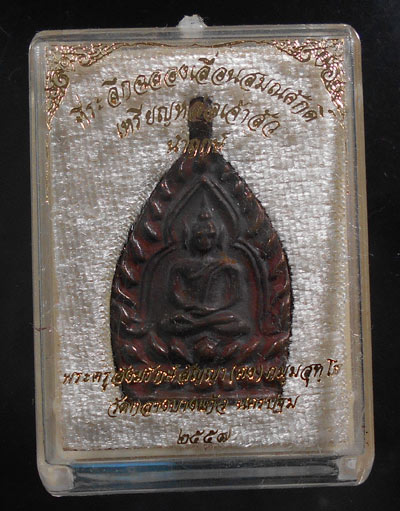 ที่ระลึกฉลองเลื่อนสมณศักดิ์
เหรียญหล่อเจ้าสัว
นำฤกษ์
วัดกลางบางแก้ว นครปฐม
๒๕๕๗